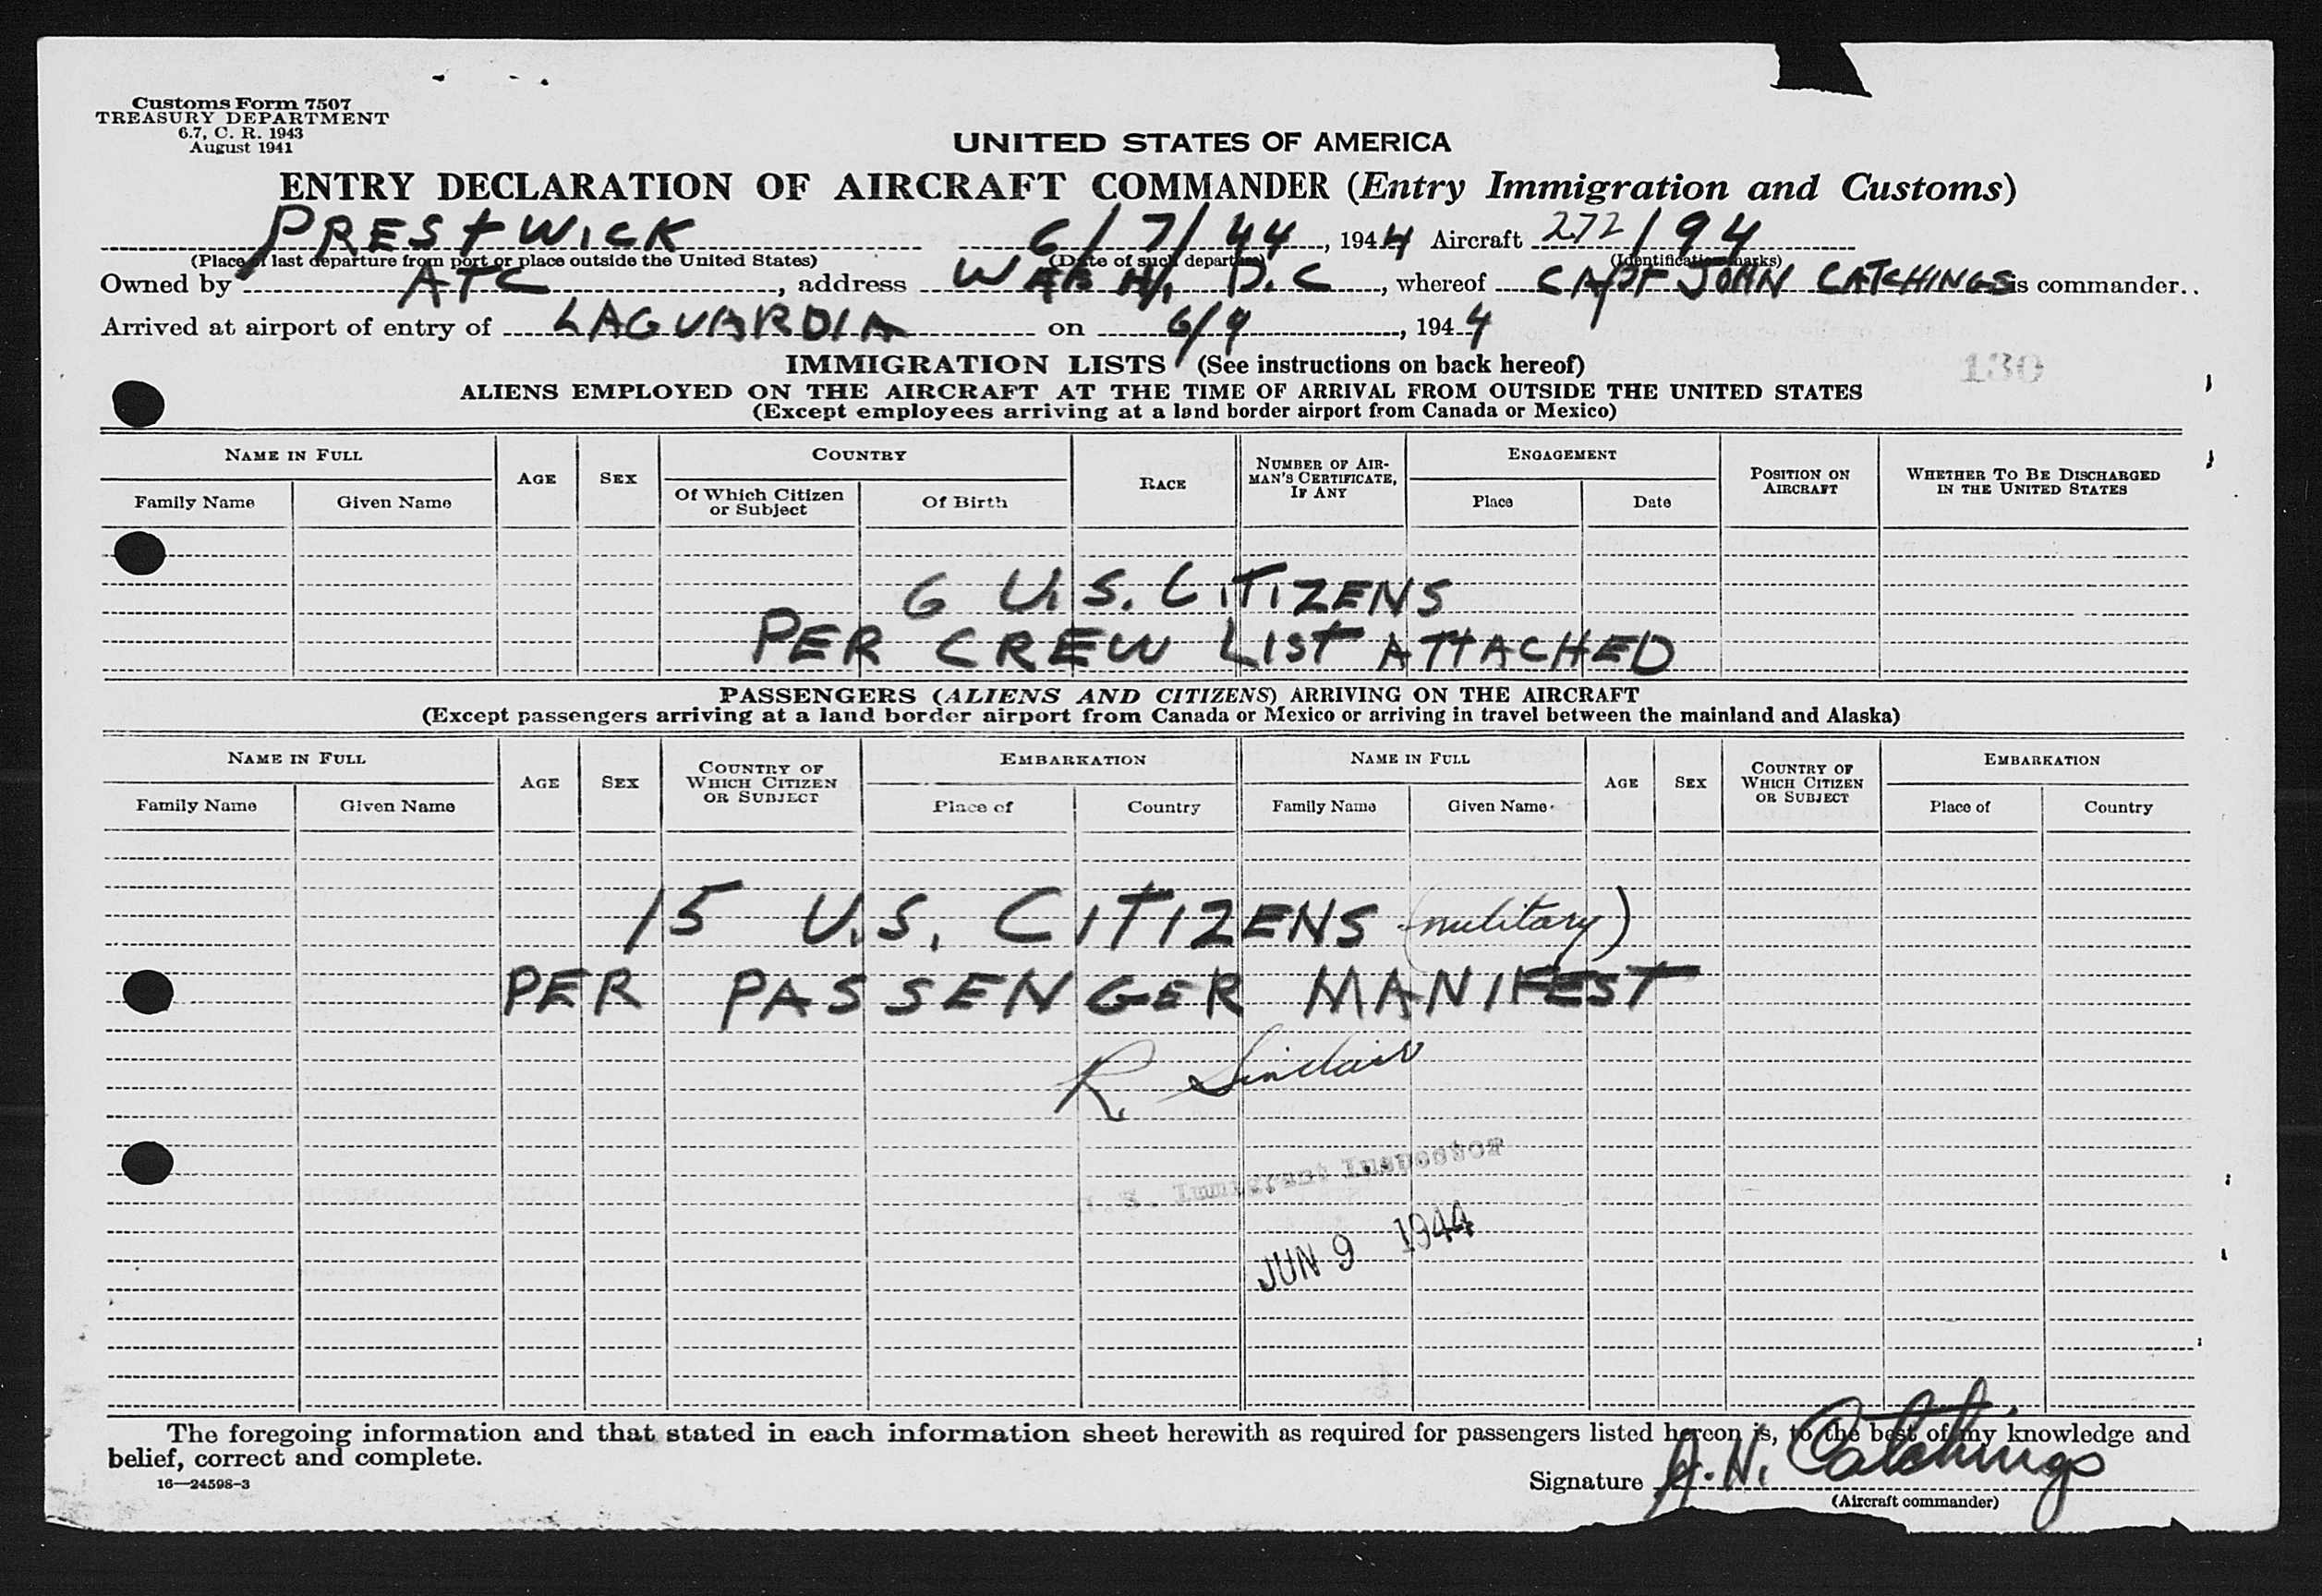 Customs Form 7507
TREASURY DEPARTMENT
6.7, C. R. 1943
August 1941
UNITED STATES OF AMERICA
ENTRY DECLARATION OF AIRCRAFT COMMANDER (Entry Immigration and Customs)
PRESTWICK 6/7/44, 1944 Aircraft 272/94
(Place of last departure from port or place outside the United States) (Date of such departure) (Identification marks)
Owned by ATC, address WASH, D.C, whereof CAPT JOHN CATCHINGS is commander..
Arrived at airport of entry of LAGUARDIA on 6/9, 1944
IMMIGRATION LISTS (See instructions on back hereof)
130
ALIENS EMPLOYED ON THE AIRCRAFT AT THE TIME OF ARRIVAL FROM OUTSIDE THE UNITED STATES
(Except employees arriving at a land border airport from Canada or Mexico)
NAME IN FULL AGE SEX COUNTRY RACE NUMBER OF AIRMAN'S CERTIFICATE, IF ANY ENGAGEMENT POSITION ON AIRCRAFT WHETHER TO BE DISCHARGED IN THE UNITED STATES
Family Name Given Name Of Which Citizen or Subject Of Birth Place Date
6 U.S. CITIZENS
PER CREW LIST ATTACHED
PASSENGERS (ALIENS AND CITIZENS) ARRIVING ON THE AIRCRAFT
(Except passengers arriving at a land border airport from Canada or Mexico or arriving in travel between the mainland and Alaska)
NAME IN FULL AGE SEX COUNTRY OF WHICH CITIZEN OR SUBJECT EMBARKATION NAME IN FULL AGE SEX COUNTRY OF WHICH CITIZEN OR SUBJECT EMBARKATION
Family Name Given Name Place of Country Family Name Given Name Place of Country
15 U.S. CITIZENS (military)
PER PASSENGER MANIFEST
R. Sinclair
Immigrant Inspector
JUN 9 1944
The foregoing information and that stated in each information sheet herewith as required for passengers listed hereon is, to the best of my knowledge and
belief, correct and complete.
16—24598-3
Signature J. N. Catchings
(Aircraft commander)